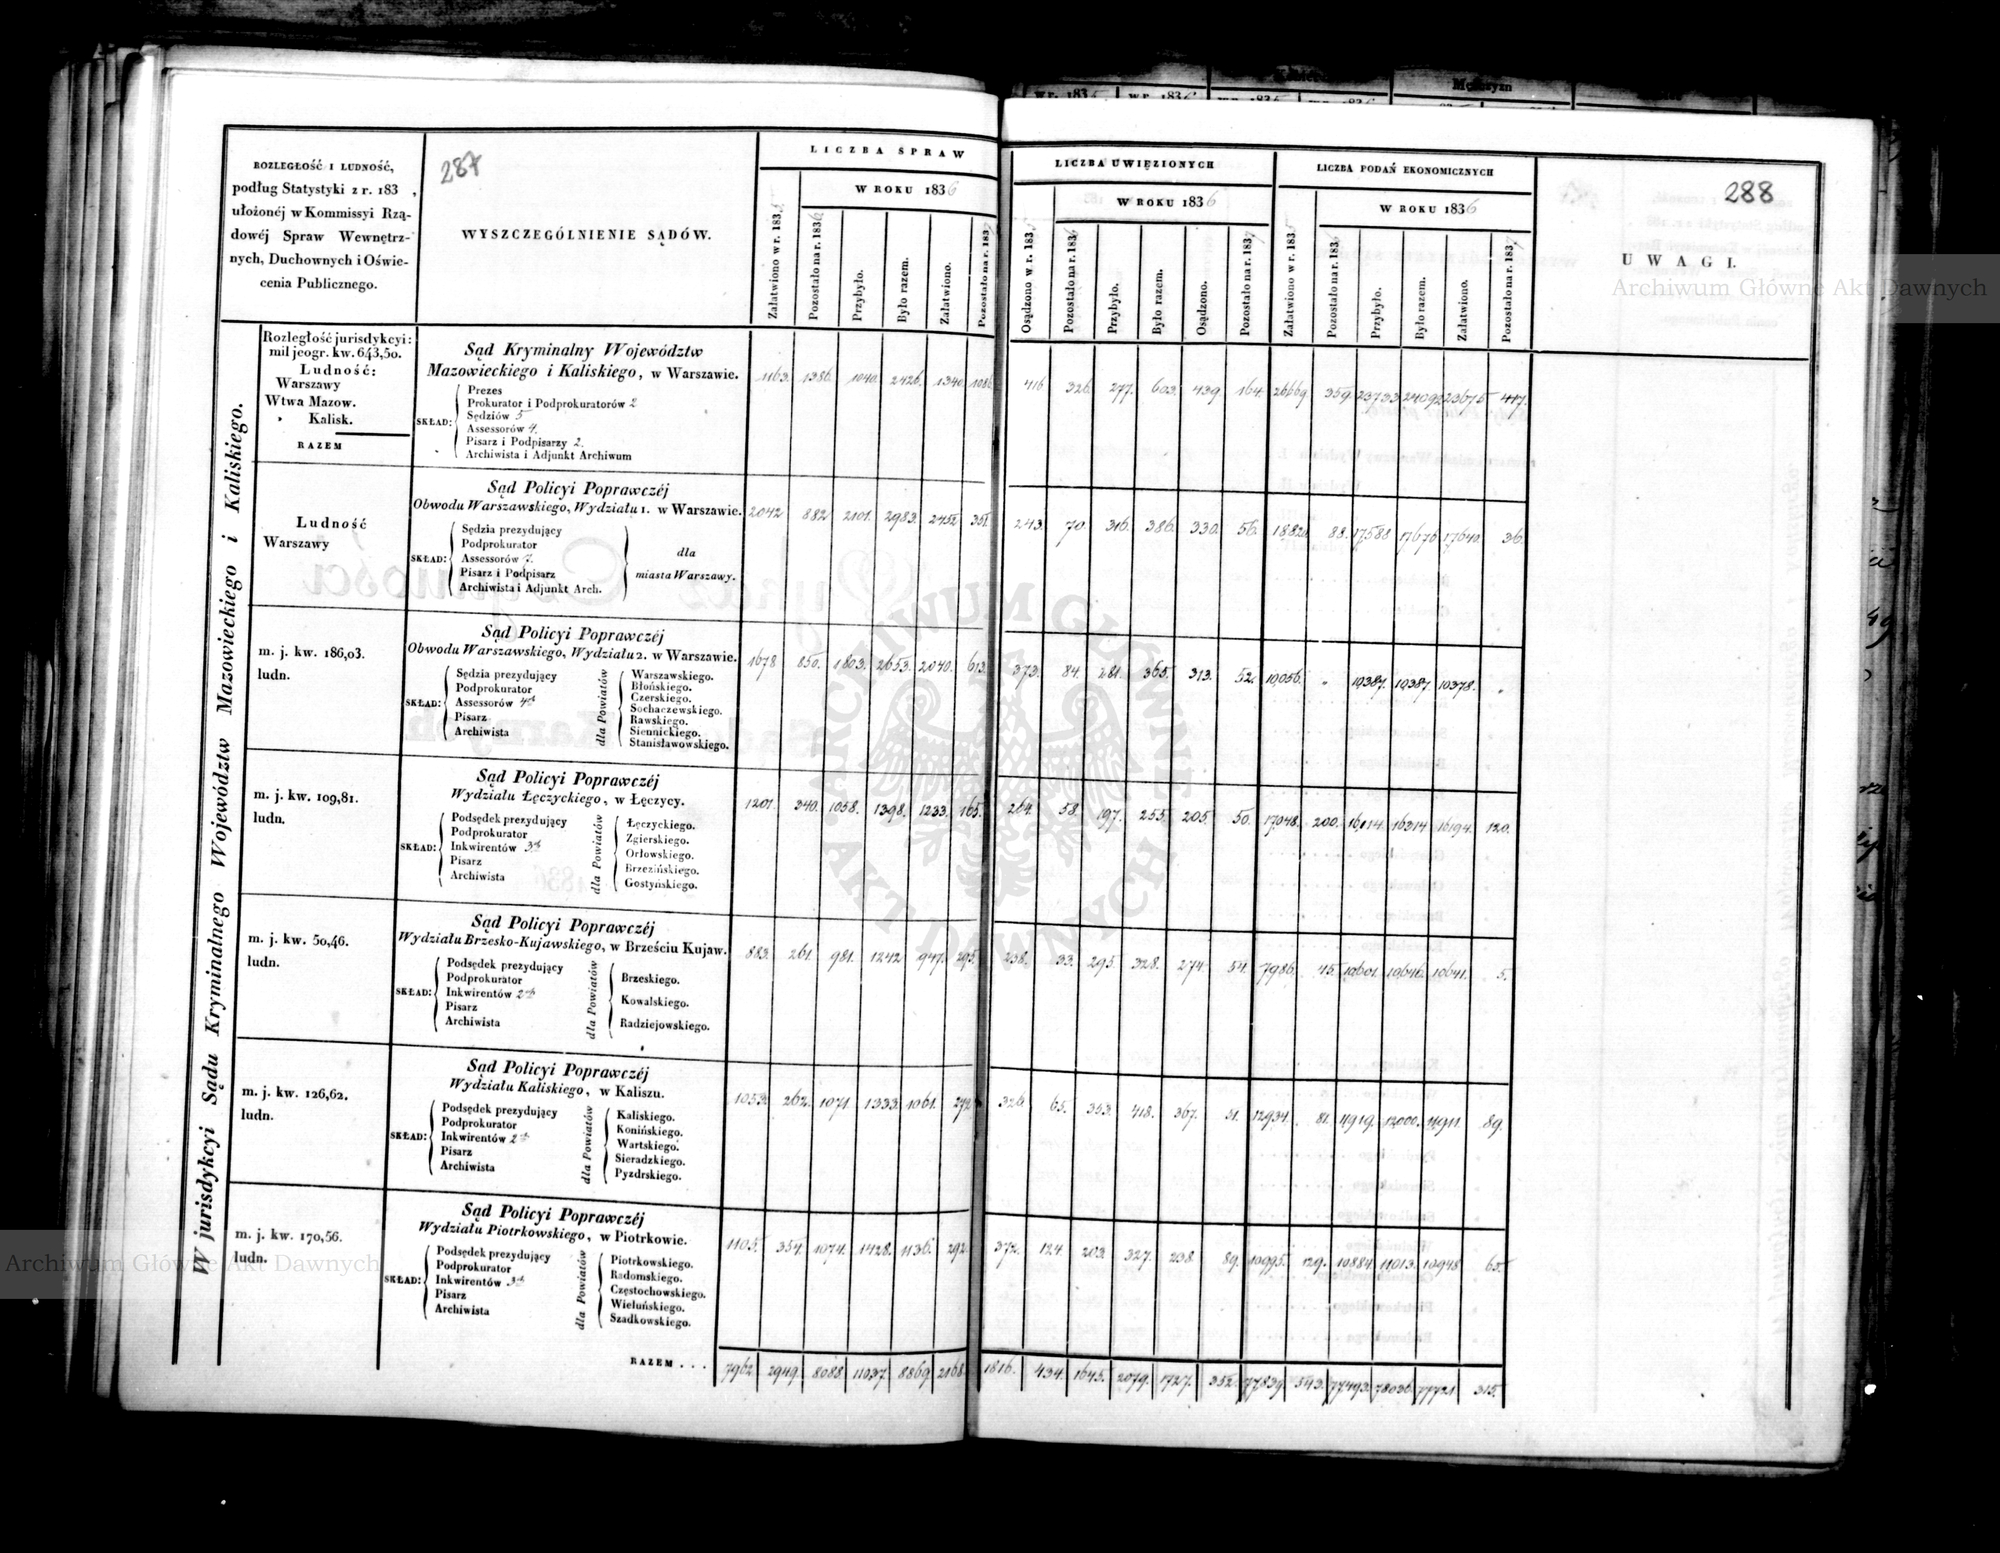 287
288
ROZLEGŁOŚĆ I LUDNOŚĆ,
podług Statystyki z r. 183 ,
ułożonéj w Kommissyi Rzą-
dowéj Spraw Wewnętrz-
nych, Duchownych i Oświe-
cenia Publicznego.
WYSZCZEGÓLNIENIE SĄDÓW.
LICZBA SPRAW
Załatwiono w r. 1835
W ROKU 1836
Pozostało na r. 1836
Przybyło.
Było razem.
Załatwiono.
Pozostało na r. 1837
LICZBA UWIĘZIONYCH
Osądzono w r. 1835
W ROKU 1836
Pozostało na r. 1836
Przybyło.
Było razem.
Osądzono.
Pozostało na r. 1837
LICZBA PODAŃ EKONOMICZNYCH
Załatwiono w r. 1835
W ROKU 1836
Pozostało na r. 1836
Przybyło.
Było razem.
Załatwiono.
Pozostało na r. 1837
UWAGI.
W jurisdykcyi Sądu Kryminalnego Województw Mazowieckiego i Kaliskiego.
Rozległość jurisdykcyi:
mil jeogr. kw. 643,50.
Ludność:
Warszawy
Wtwa Mazow.
" Kalisk.
RAZEM
Sąd Kryminalny Województw
Mazowieckiego i Kaliskiego, w Warszawie.
SKŁAD:
Prezes
Prokurator i Podprokuratorów 2
Sędziów 5
Assessorów 4.
Pisarz i Podpisarzy 2.
Archiwista i Adjunkt Archiwum
1163. 1386. 1040. 2426. 1340. 1086.
416 326. 277. 603. 439. 164. 26669. 359. 23733 24092 23675 417.
Ludność
Warszawy
Sąd Policyi Poprawczéj
Obwodu Warszawskiego, Wydziału 1. w Warszawie.
SKŁAD:
Sędzia prezydujący
Podprokurator
Assessorów 7.
Pisarz i Podpisarz
Archiwista i Adjunkt Arch.
dla
miasta Warszawy.
2042 882 2101. 2983. 2452 351.
243. 70 316. 386. 330. 56. 18820. 88. 17588 17676 17640. 36.
m. j. kw. 186,03.
ludn.
Sąd Policyi Poprawczéj
Obwodu Warszawskiego, Wydziału 2. w Warszawie.
SKŁAD:
Sędzia prezydujący
Podprokurator
Assessorów 4ch
Pisarz
Archiwista
dla Powiatów
Warszawskiego.
Błońskiego.
Czerskiego.
Sochaczewskiego.
Rawskiego.
Siennickiego.
Stanisławowskiego.
1678 850. 1803. 2653. 2040. 613.
373. 84. 281. 365. 313. 52. 10,056. " 10,387. 10,387. 10378. "
m. j. kw. 109,81.
ludn.
Sąd Policyi Poprawczéj
Wydziału Łęczyckiego, w Łęczycy.
SKŁAD:
Podsędek prezydujący
Podprokurator
Inkwirentów 3ch
Pisarz
Archiwista
dla Powiatów
Łęczyckiego.
Zgierskiego.
Orłowskiego.
Brzezińskiego.
Gostyńskiego.
1201. 340. 1058. 1398. 1233. 165.
264. 58. 197. 255. 205. 50. 17048. 200. 16114. 16314 16194. 120.
m. j. kw. 50,46.
ludn.
Sąd Policyi Poprawczéj
Wydziału Brzesko-Kujawskiego, w Brześciu Kujaw.
SKŁAD:
Podsędek prezydujący
Podprokurator
Inkwirentów 2ch
Pisarz
Archiwista
dla Powiatów
Brzeskiego.
Kowalskiego.
Radziejowskiego.
883. 261. 981. 1242 947. 295.
238. 33. 295. 328. 274. 54. 7986. 45. 10601. 10646. 10641. 5.
m. j. kw. 126,62.
ludn.
Sąd Policyi Poprawczéj
Wydziału Kaliskiego, w Kaliszu.
SKŁAD:
Podsędek prezydujący
Podprokurator
Inkwirentów 2ch
Pisarz
Archiwista
dla Powiatów
Kaliskiego.
Konińskiego.
Wartskiego.
Sieradzkiego.
Pyzdrskiego.
1053. 262. 1071. 1333. 1061. 272.
326. 65. 353. 418. 367. 51. 12934. 81. 11919. 12000. 11911. 89.
m. j. kw. 170,56.
ludn.
Sąd Policyi Poprawczéj
Wydziału Piotrkowskiego, w Piotrkowie.
SKŁAD:
Podsędek prezydujący
Podprokurator
Inkwirentów 3ch
Pisarz
Archiwista
dla Powiatów
Piotrkowskiego.
Radomskiego.
Częstochowskiego.
Wieluńskiego.
Szadkowskiego.
1105. 354. 1074. 1428. 1136. 292.
372. 124. 203. 327. 238 89. 10995. 129. 10884. 11013. 10948 65.
RAZEM . . .
7962. 2949. 8088. 11037. 8869. 2168.
1816. 434. 1645. 2079. 1727. 352. 77839. 543. 77493. 78036. 77721 315.
Archiwum Główne Akt Dawnych
Archiwum Główne Akt Dawnych
ARCHIWUM GŁÓWNE AKT DAWNYCH